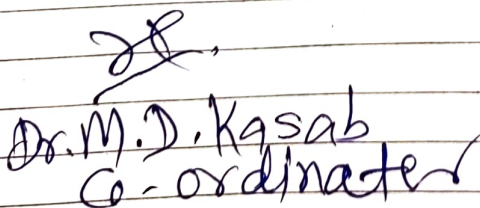 Dr. M. D. Kasab
Co-ordinater